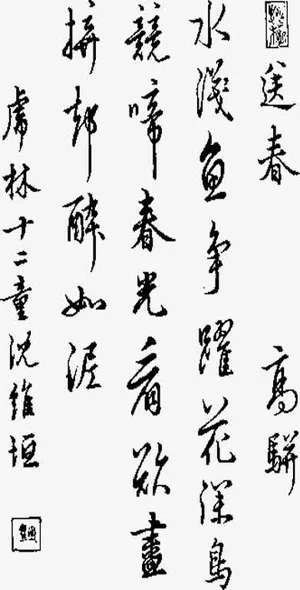 送春 高駢
水淺魚爭躍花深鳥
競啼春光看欲盡
拚却醉如泥
虎林十二童沈維垣